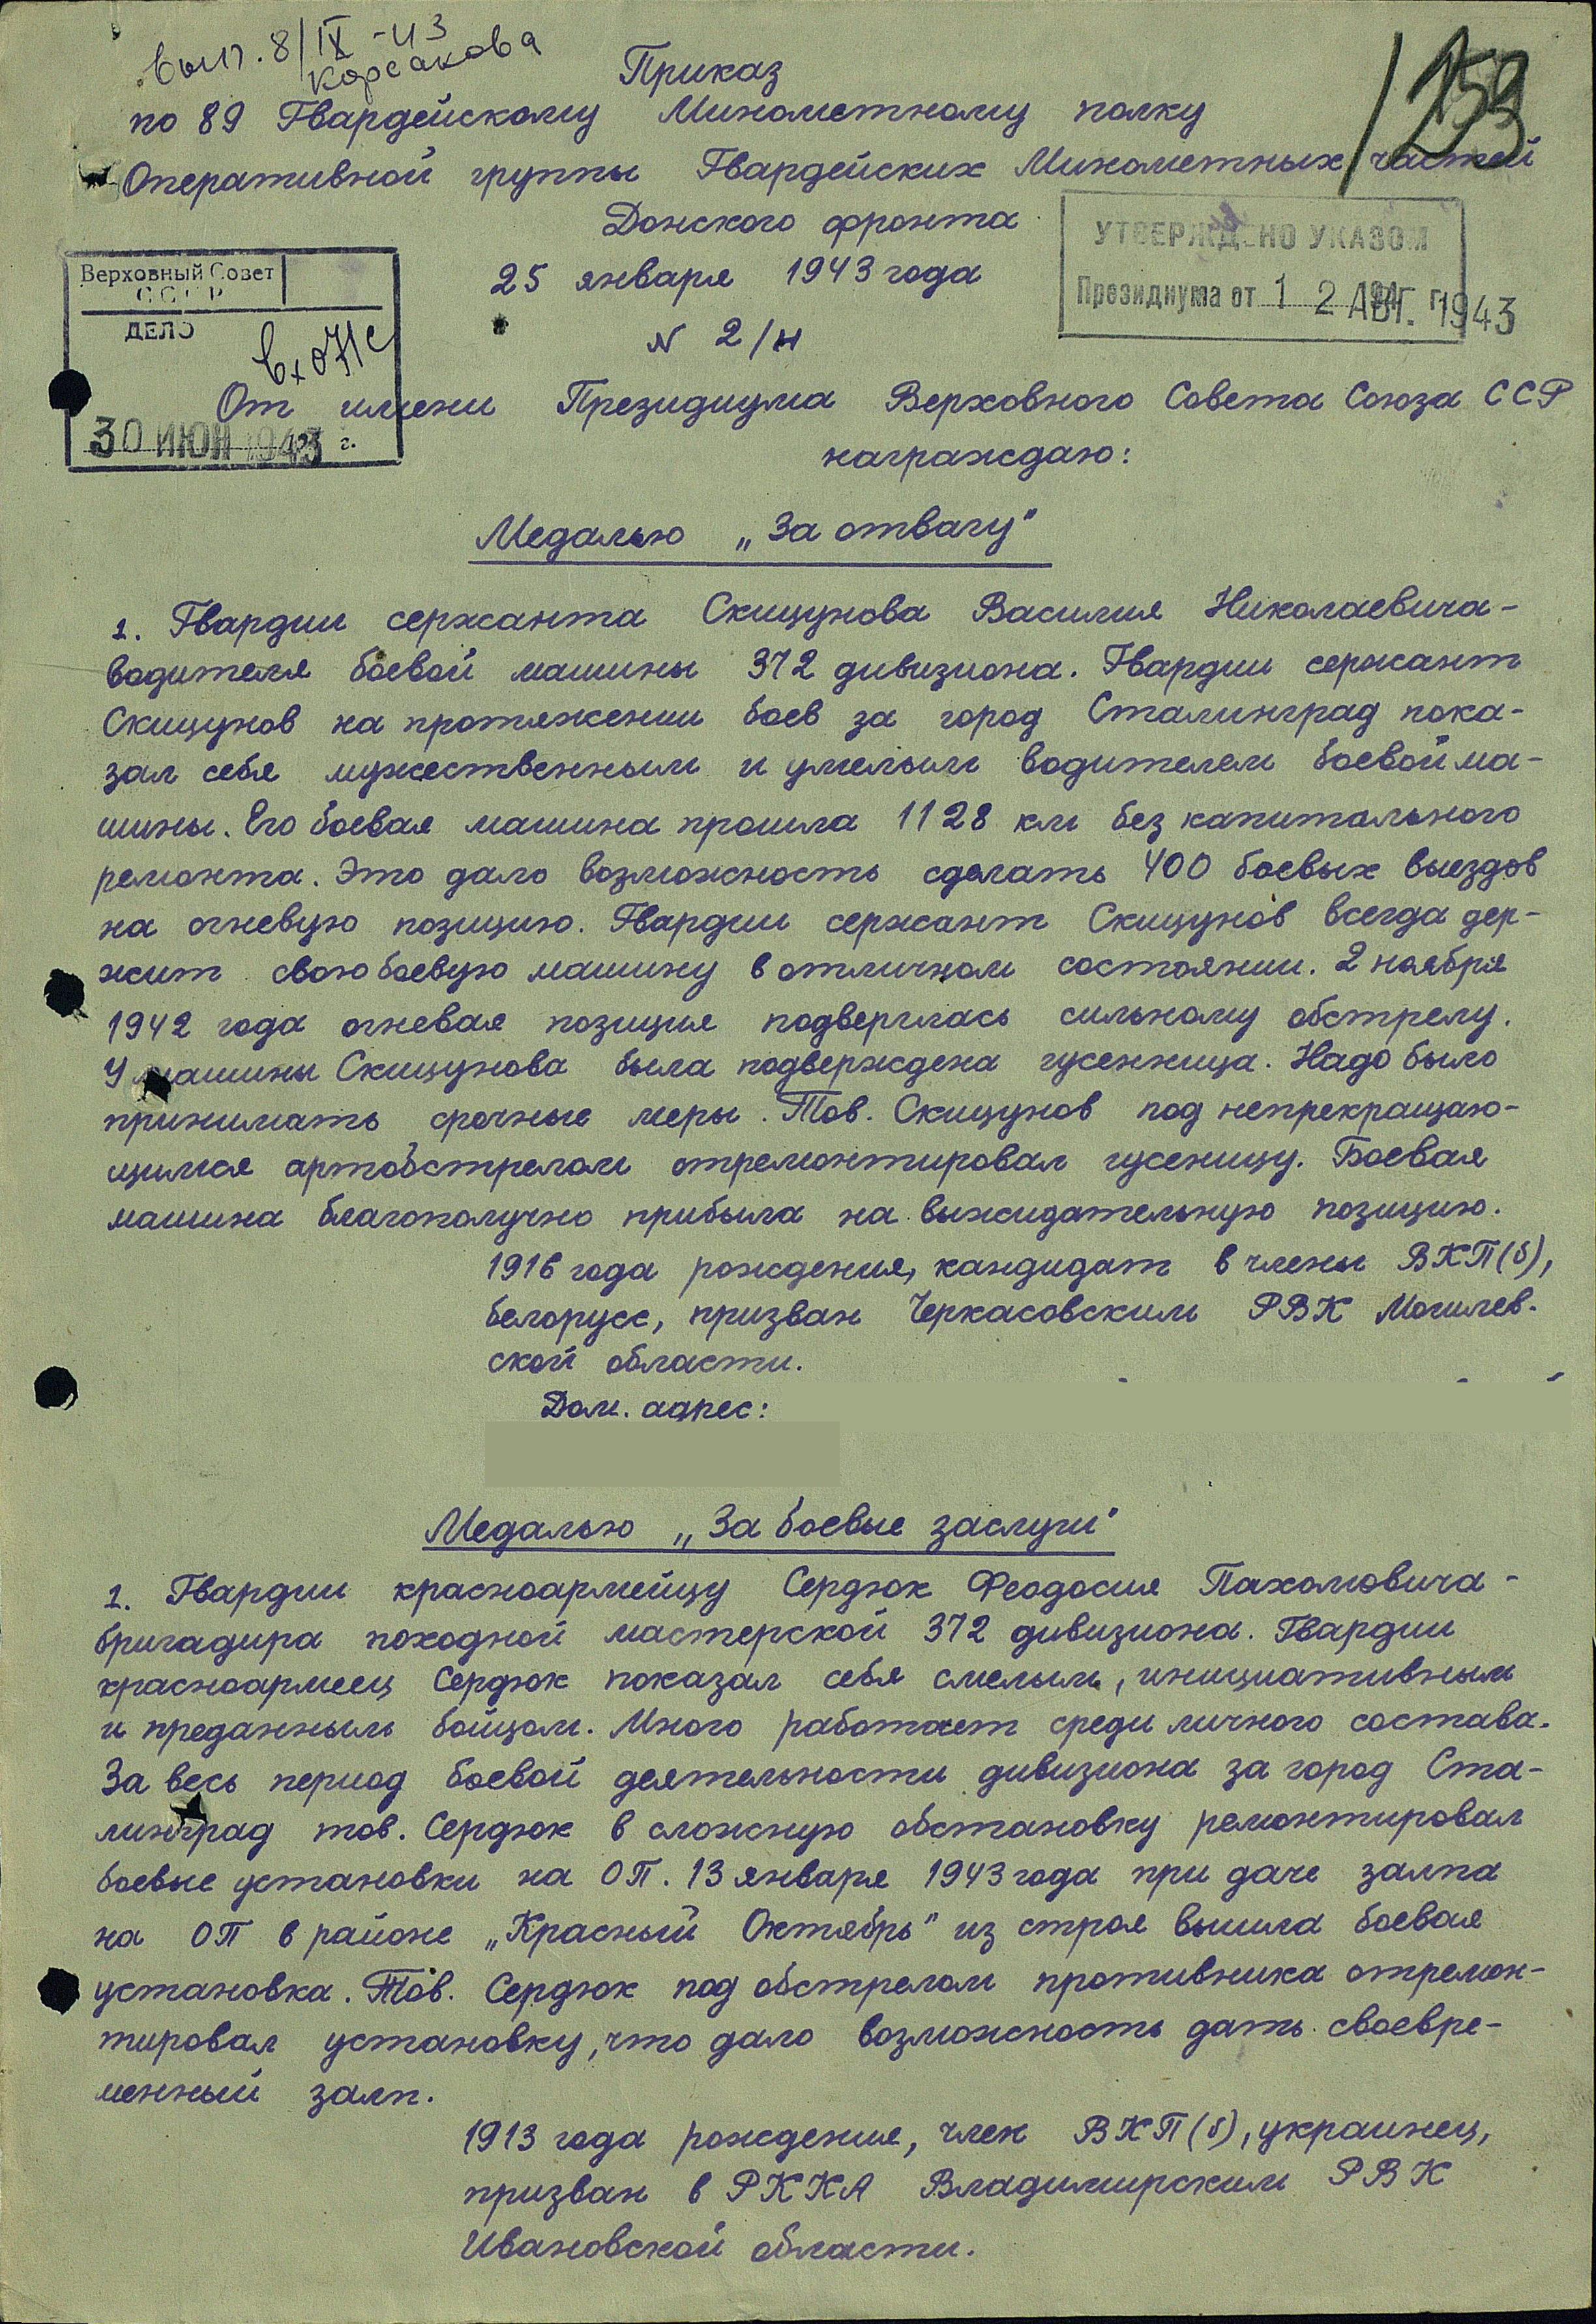 Вып. 8/IX-43
Корсакова
Приказ
по 89 Гвардейскому Минометному полку
Оперативной группы Гвардейских Минометных частей
Донского фронта
25 января 1943 года
N 2/н
УТВЕРЖДЕНО УКАЗОМ
Президиума от 12 АВГ. 1943
Верховный Совет
СССР
ДЕЛО
вх071с
30 ИЮН 1943 г.
От имени Президиума Верховного Совета Союза ССР
награждаю:
Медалью „За отвагу"
1. Гвардии сержанта Скицунова Василия Николаевича-
водителя боевой машины 372 дивизиона. Гвардии сержант
Скицунов на протяжении боев за город Сталинград пока-
зал себя мужественным и умелым водителем боевой ма-
шины. Его боевая машина прошла 1128 км без капитального
ремонта. Это дало возможность сделать 400 боевых выездов
на огневую позицию. Гвардии сержант Скицунов всегда дер-
жит свою боевую машину в отличном состоянии. 2 ноября
1942 года огневая позиция подверглась сильному обстрелу.
У машины Скицунова была подверждена гусенница. Надо было
принимать срочные меры. Тов. Скицунов под непрекращаю-
щимся артобстрелом отремонтировал гусеницу. Боевая
машина благополучно прибыла на выжидательную позицию.
1916 года рождения, кандидат в члены ВКП(б),
белорусс, призван Черкасовским РВК Могилев-
ской области.
Дом. адрес:
Медалью „За боевые заслуги"
1. Гвардии красноармейцу Сердюк Феодосия Пахомовича-
бригадира походной мастерской 372 дивизиона. Гвардии
красноармеец Сердюк показал себя смелым, инициативным
и преданным бойцом. Много работает среди личного состава.
За весь период боевой деятельности дивизиона за город Ста-
линград тов. Сердюк в сложную обстановку ремонтировал
боевые установки на ОП. 13 января 1943 года при даче залпа
на ОП в районе „Красный Октябрь" из строя вышла боевая
установка. Тов. Сердюк под обстрелом противника отремон-
тировал установку, что дало возможность дать своевре-
менный залп.
1913 года рождения, член ВКП(б), украинец,
призван в РККА Владимирским РВК
Ивановской области.